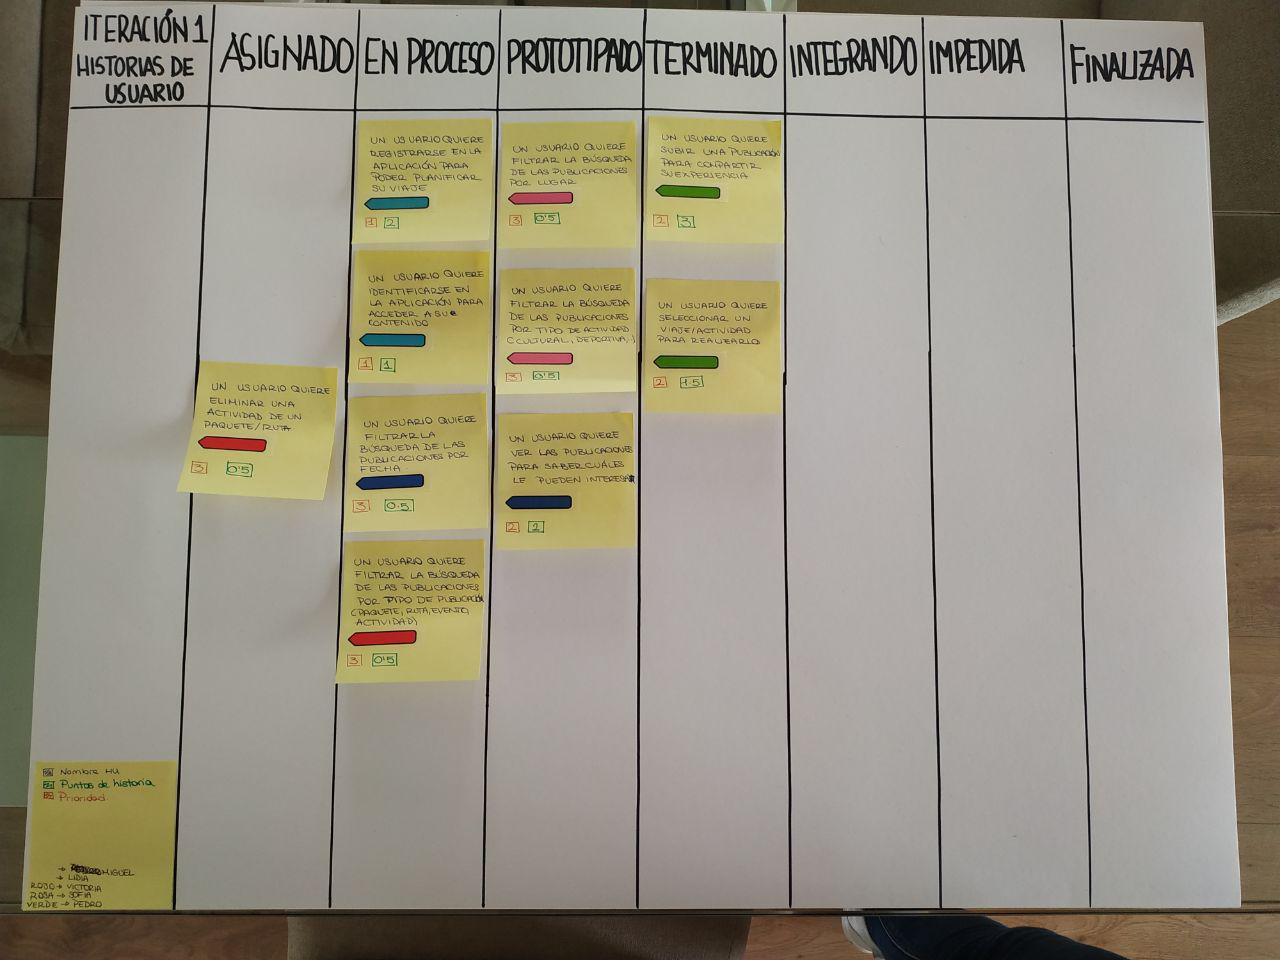 ITERACIÓN 1
HISTORIAS DE
USUARIO
ASIGNADO
EN PROCESO
PROTOTIPADO
TERMINADO
INTEGRANDO
IMPEDIDA
FINALIZADA
UN USUARIO QUIERE
ELIMINAR UNA
ACTIVIDAD DE UN
PAQUETE/RUTA
3 0'5
UN USUARIO QUIERE
REGISTRARSE EN LA
APLICACIÓN PARA
PODER PLANIFICAR
SU VIAJE
1 2
UN USUARIO QUIERE
IDENTIFICARSE EN
LA APLICACIÓN PARA
ACCEDER A SU
CONTENIDO
1 1
UN USUARIO QUIERE
FILTRAR LA
BÚSQUEDA DE LAS
PUBLICACIONES POR
FECHA
3 0.5
UN USUARIO QUIERE
FILTRAR LA BÚSQUEDA
DE LAS PUBLICACIONES
POR TIPO DE PUBLICACIÓN
(PAQUETE, RUTA, EVENTO,
ACTIVIDAD)
3 0'5
UN USUARIO QUIERE
FILTRAR LA BÚSQUEDA
DE LAS PUBLICACIONES
POR LUGAR
3 0'5
UN USUARIO QUIERE
FILTRAR LA BÚSQUEDA
DE LAS PUBLICACIONES
POR TIPO DE ACTIVIDAD
(CULTURAL, DEPORTIVA,..)
3 0'5
UN USUARIO QUIERE
VER LAS PUBLICACIONES
PARA SABER CUÁLES
LE PUEDEN INTERESAR
2
UN USUARIO QUIERE
SUBIR UNA PUBLICACIÓN
PARA COMPARTIR
SU EXPERIENCIA
2 3
UN USUARIO QUIERE
SELECCIONAR UN
VIAJE/ACTIVIDAD
PARA REALIZARLO
2 1.5
Nombre HU
Puntos de historia
Prioridad
→ MIGUEL
→ LIDIA
ROJO → VICTORIA
ROSA → SOFIA
VERDE → PEDRO